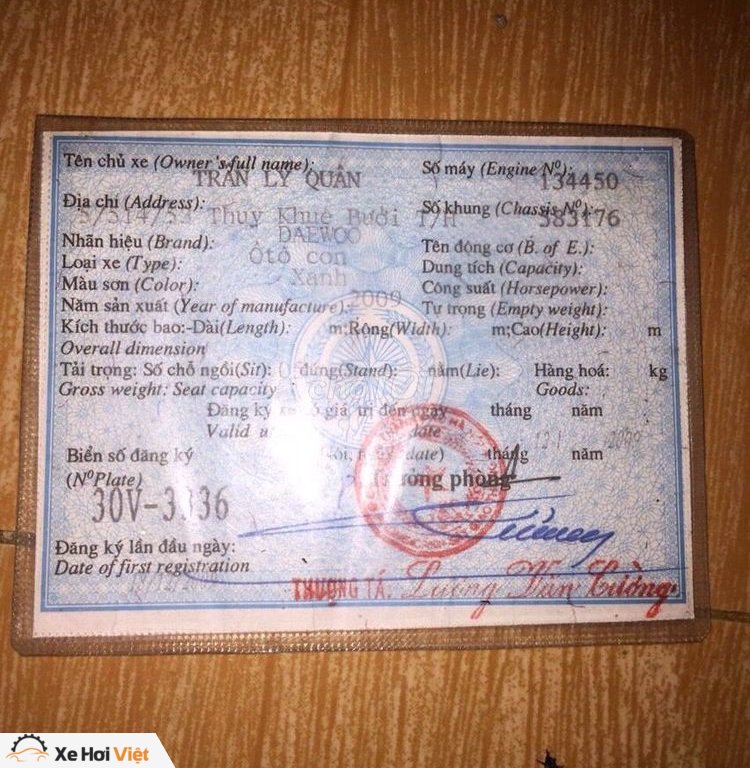 Tên chủ xe (Owner's full name): Số máy (Engine Nº):
TRẦN LÝ QUÂN 134450
Địa chỉ (Address): Số khung (Chassis Nº):
Thụy Khuê Bưởi T/H 383176
Nhãn hiệu (Brand): DAEWOO Tên động cơ (B. of E.):
Loại xe (Type): Ôtô con Dung tích (Capacity):
Màu sơn (Color): Xanh Công suất (Horsepower):
Năm sản xuất (Year of manufacture): 2009 Tự trọng (Empty weight):
Kích thước bao:-Dài(Length): m;Rộng(Width): m;Cao(Height): m
Overall dimension
Tải trọng: Số chỗ ngồi(Sit): đứng(Stand): nằm(Lie): Hàng hoá: kg
Gross weight: Seat capacity Goods:
Đăng ký xe có giá trị đến ngày tháng năm
Valid date
Biển số đăng ký date) tháng năm
(NºPlate) Trưởng phòng
30V-3336
Đăng ký lần đầu ngày:
Date of first registration
THƯỢNG TÁ. Lương Văn Cường
Xe Hơi Việt